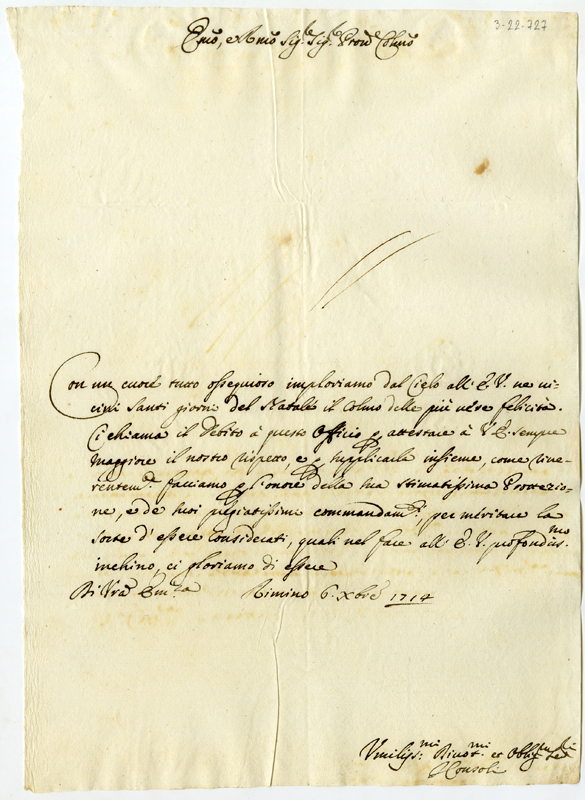 3-22-727
Emo, e Rmo Sigr. Sigr. Prone Colmo
Con un cuore tutto ossequioso imploriamo dal Cielo all' E. V. ne vi-
cini Santi giorni del Natale il Colmo delle più vere felicità.
Ci chiama il debito à questo Officio p attestare à V. E. sempre
maggiore il nostro rispetto, e p supplicarla insieme, come rive-
rentemte. facciamo p l'onore della sua stimatissima Protezio-
ne, e de suoi pregiatissimi commandamti, per meritare la
sorte d'essere considerati, quali nel fare all' E. V. profondissmo
inchino, ci gloriamo di essere
Di Vra Emza Rimino 6. Xbre 1714
Umiliss:mi Divot:mi et Obbligmi
Consoli